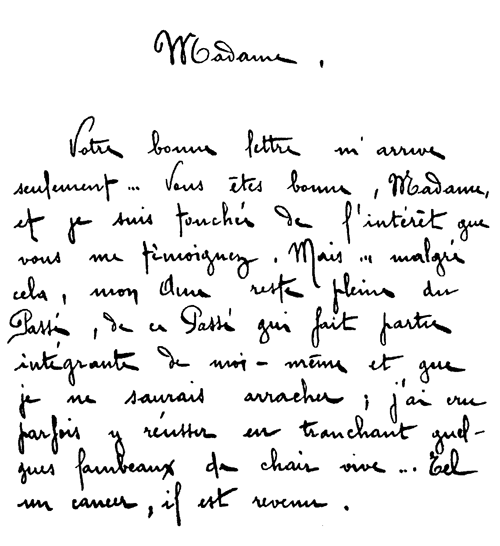 Madame,
Votre bonne lettre m'arrive
seulement... Vous êtes bonne, Madame,
et je suis touchée de l'intérêt que
vous me témoignez. Mais... malgré
cela, mon âme reste pleine du
Passé, de ce Passé qui fait partie
intégrante de moi-même et que
je ne saurais arracher; j'ai cru
parfois y réussir en tranchant quel-
ques lambeaux de chair vive... Tel
un cancer, il est revenu.